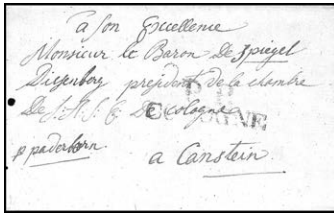 a Son Excellence
Monsieur le Baron De Spiegel
Diesenberg president de la chambre
De S. A. S. E De Cologne
p paderborn
a Canstein